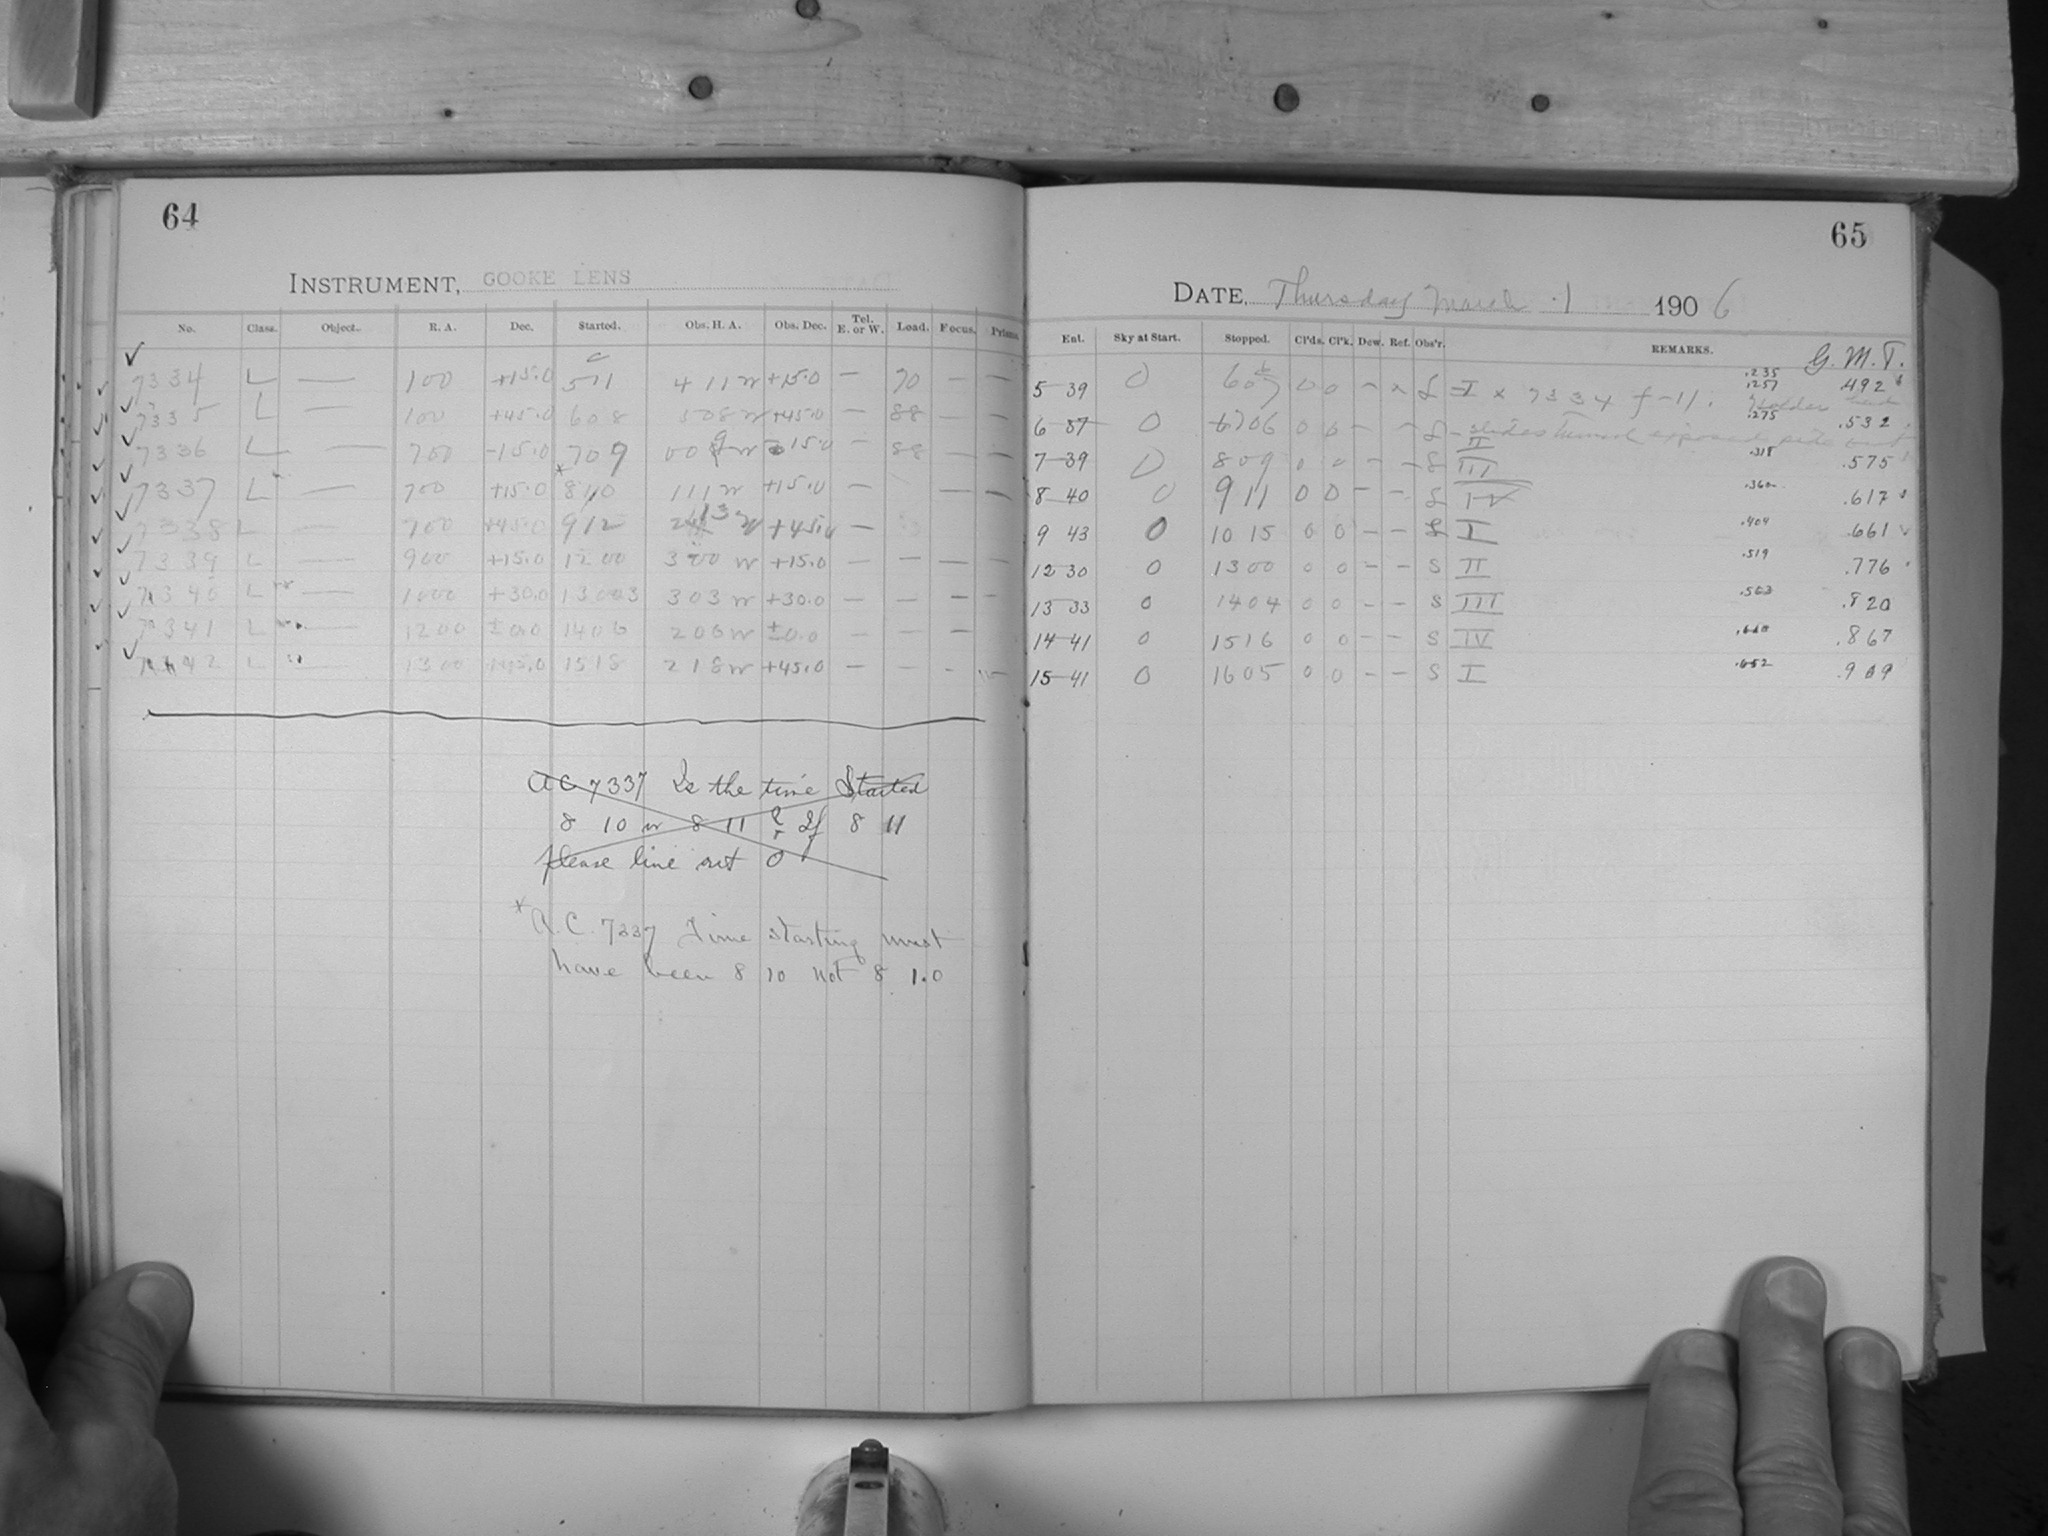 64
INSTRUMENT, COOKE LENS
No. Class. Object. R. A. Dec. Started. Obs. H. A. Obs. Dec. Tel. E. or W. Load. Focus. Prisms.
7334 L — 100 +15.0 511 411 w +15.0 — 70 — —
7335 L — 100 +45.0 608 508 w +45.0 — 88 — —
7336 L — 700 -15.0 709 009 w -15.0 — 88 — —
7337 L — 700 +15.0 * 810 111 w +15.0 — — —
7338 L — 700 +45.0 912 213 w +45.0 —
7339 L — 900 +15.0 1200 300 w +15.0 — — — —
7340 L — 1000 +30.0 1303 303 w +30.0 — — — —
7341 L — 1200 ±0.0 1406 206 w ±0.0 — — —
7342 L — 1300 +45.0 1518 218 w +45.0 — — - —
AC 7337 Is the time Started
8 10 or 8 11 ? If 8 11
please line out 0
* A.C. 7337 Time starting must
have been 8 10 not 8 1.0
65
DATE, Thursday March 1 1906
Ent. Sky at Start. Stopped. Cl'ds. Cl'k. Dew. Ref. Obs'r. REMARKS. G. M. T.
5-39 0 607 0 0 - x S I x 7334 f-11. .235 .257 .492
Holder
6-37 0 706 0 0 - - S II .275 .532
slides turned exposed side out
7-39 0 809 0 0 - - S III .318 .575
8-40 0 911 0 0 - - S IV .360 .617
9 43 0 10 15 0 0 - - S I .404 .661
12-30 0 1300 0 0 - - S II .519 .776
13-33 0 1404 0 0 - - S III .563 .820
14-41 0 1516 0 0 - - S IV .867
15-41 0 1605 0 0 - - S I .652 .909